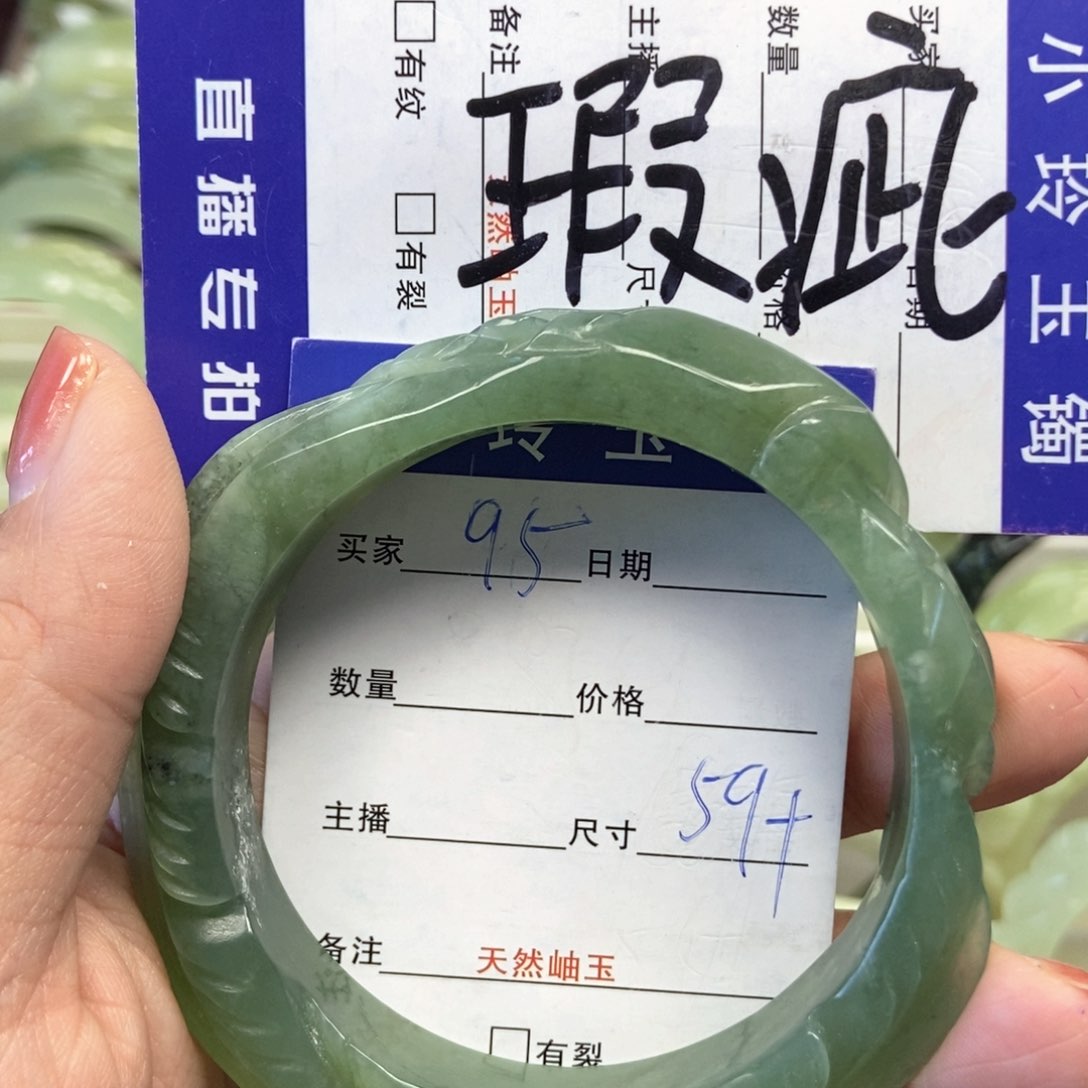 直播专拍
□有纹
□有裂
备注
天然岫玉
主播
尺寸
数量
价格
买家
日期
小玲玉镯
瑕疵
玲玉
买家 95 日期
数量 价格
主播 尺寸 59+
备注 天然岫玉
□有裂